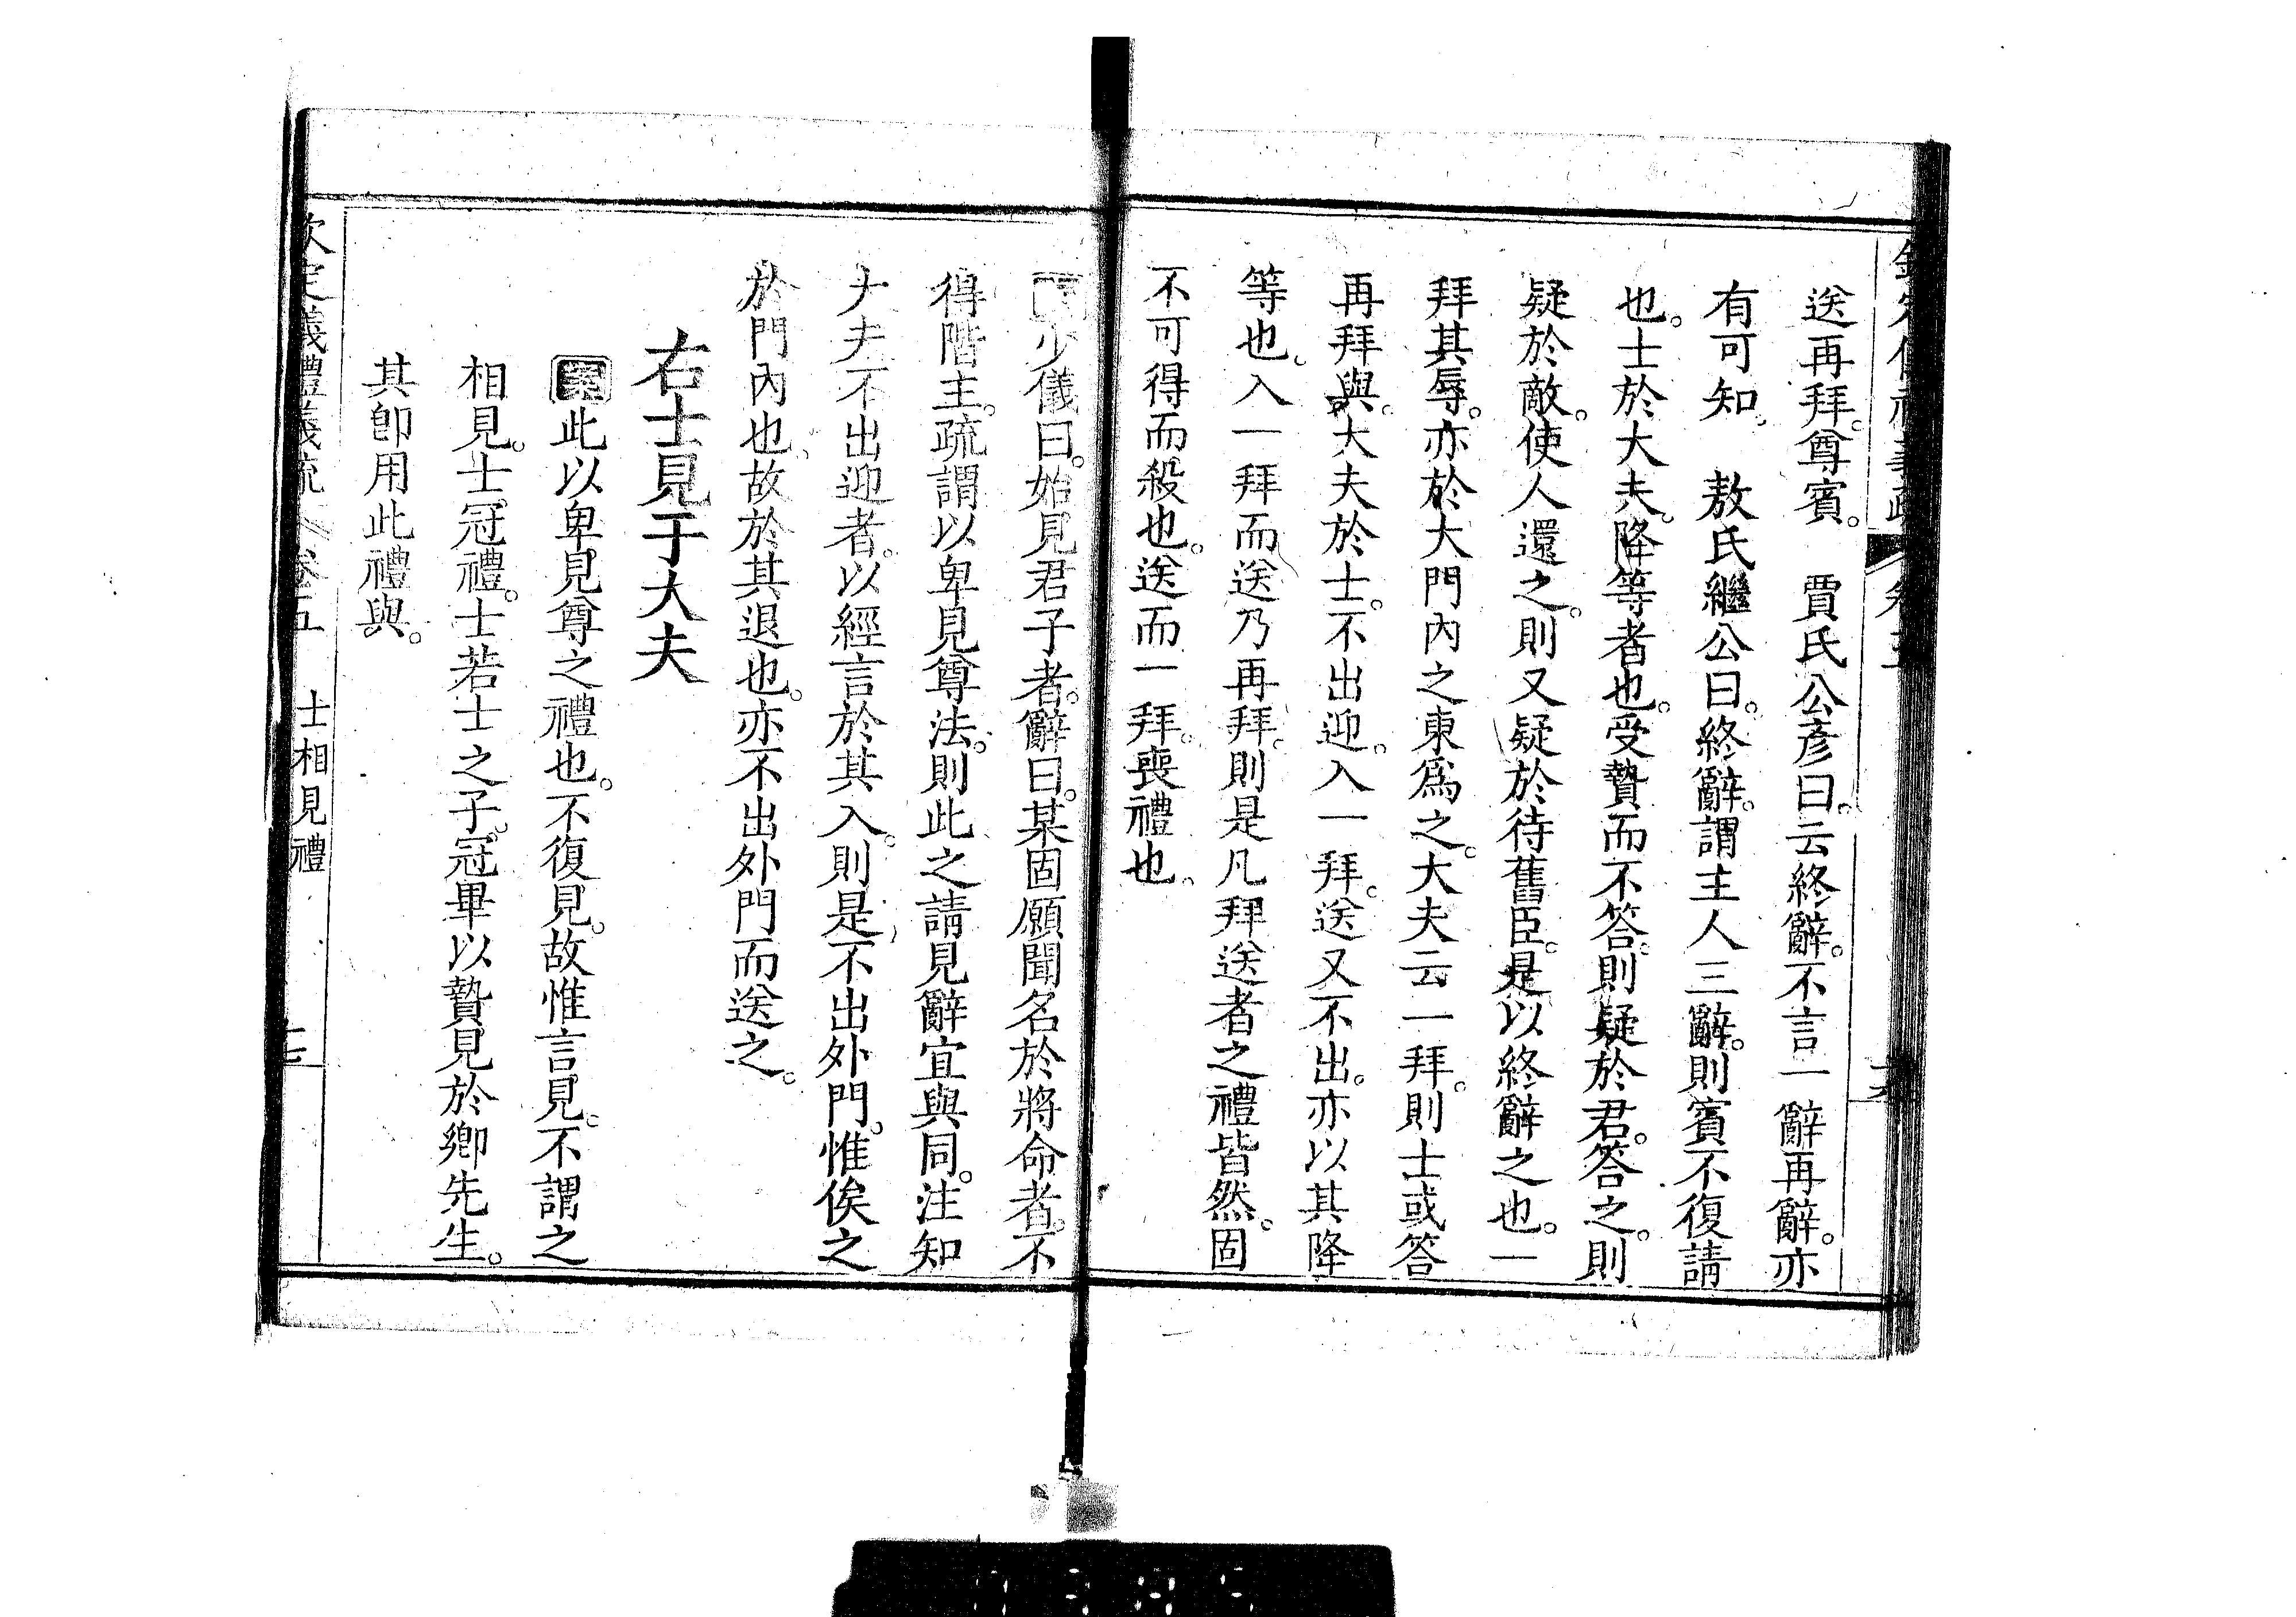 欽定儀禮義疏 卷五
送再拜。尊賓。 賈氏公彥曰。云終辭。不言一辭再辭。亦
有可知。 敖氏繼公曰。終辭。謂主人三辭。則賓不復請
也。士於大夫。降等者也。受贄而不答。則疑於君。答之。則
疑於敵。使人還之。則又疑於待舊臣。是以終辭之也。一
拜其辱。亦於大門內之東爲之。大夫云一拜。則士或答
再拜與。大夫於士。不出迎。入一拜。送又不出。亦以其降
等也。入一拜而送乃再拜。則是凡拜送者之禮皆然。固
不可得而殺也。送而一拜。喪禮也。
少儀曰。始見君子者。辭曰。某固願聞名於將命者。不
得階主。疏謂以卑見尊法。則此之請見辭宜與同。注知
大夫不出迎者。以經言於其入。則是不出外門。惟俟之
於門內也。故於其退也。亦不出外門而送之。
右士見于大夫
案此以卑見尊之禮也。不復見。故惟言見。不謂之
相見。士冠禮。士若士之子。冠畢以贄見於鄉先生。
其卽用此禮與。
欽定儀禮義疏 卷五 士相見禮